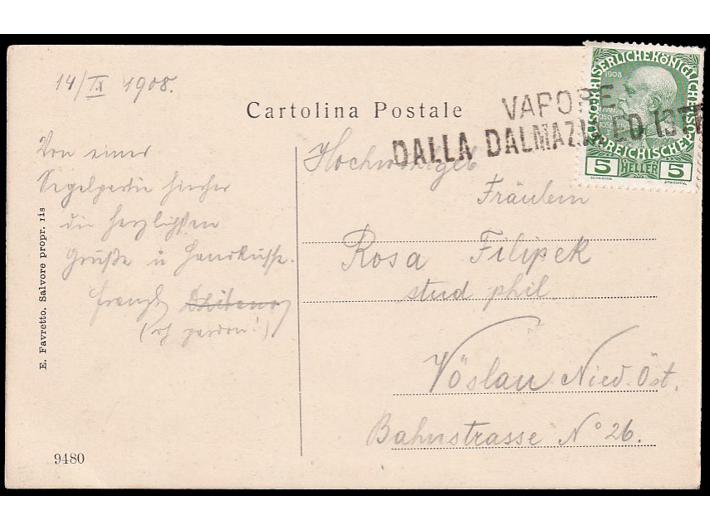 14/IX 1908.
Cartolina Postale
VAPORE
DALLA DALMAZIA ED IST
KAISERLICHE KÖNIGLICHE ÖSTERREICHISCHE POST
1908
5 HELLER 5
Von einer
Segelpartie hierher
die herzlichsten
Grüße u Handküsse.
Franzl
(oh pardon!)
Hochwohlgeb
Fräulein
Rosa Filipek
stud phil
Vöslau Nied. Öst.
Bahnstrasse No 26.
E. Favretto. Salvore propr. ris
9480